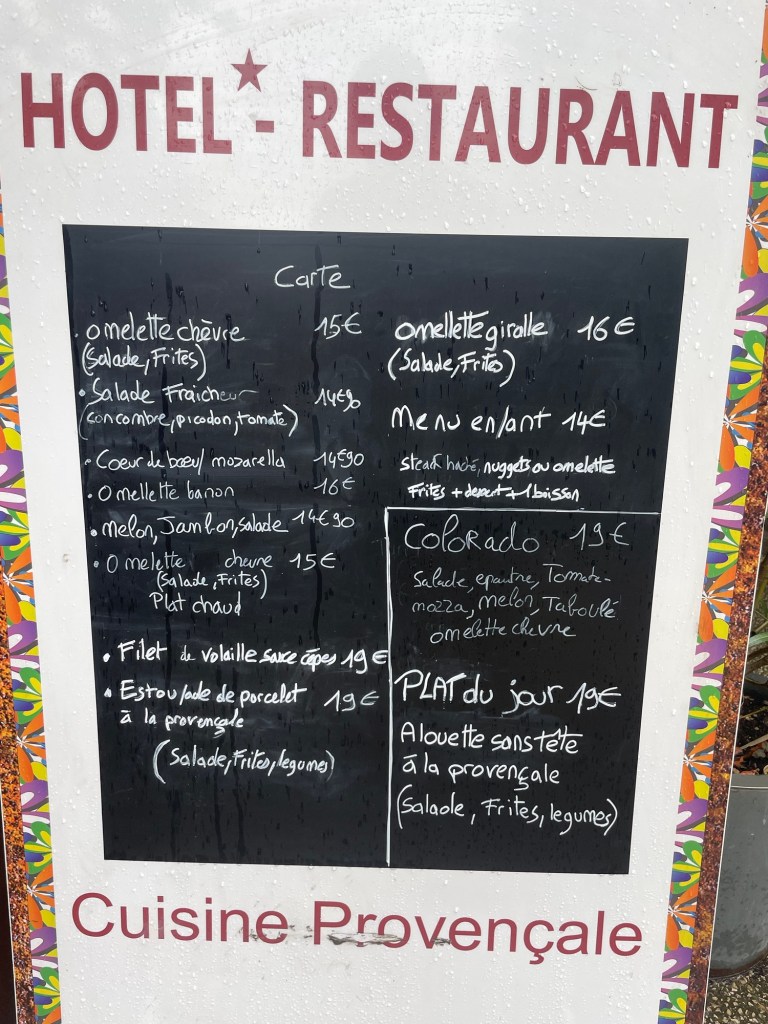 HOTEL★- RESTAURANT
Carte
. omelette chèvre 15€
(Salade, Frites)
• Salade Fraicheur 14€90
(concombre, picodon, tomate)
• Coeur de bœuf mozarella 14€90
• Omellette banon 16€
• melon, Jambon, salade 14€90
• Omelette chevre 15€
(Salade, Frites)
Plat chaud
• Filet de volaille sauce cèpes 19€
• Estoufade de porcelet 19€
à la provençale
(Salade, Frites, legumes)
omellette girolle 16€
(Salade, Frites)
Menu enfant 14€
steack haché, nuggets ou omelette
Frites + dessert + 1 boisson
Colorado 19€
Salade, epautre, Tomate-
mozza, melon, Taboulé
omelette chevre
PLAT du jour 19€
Alouette sans tête
à la provençale
(Salade, Frites, legumes)
Cuisine Provençale